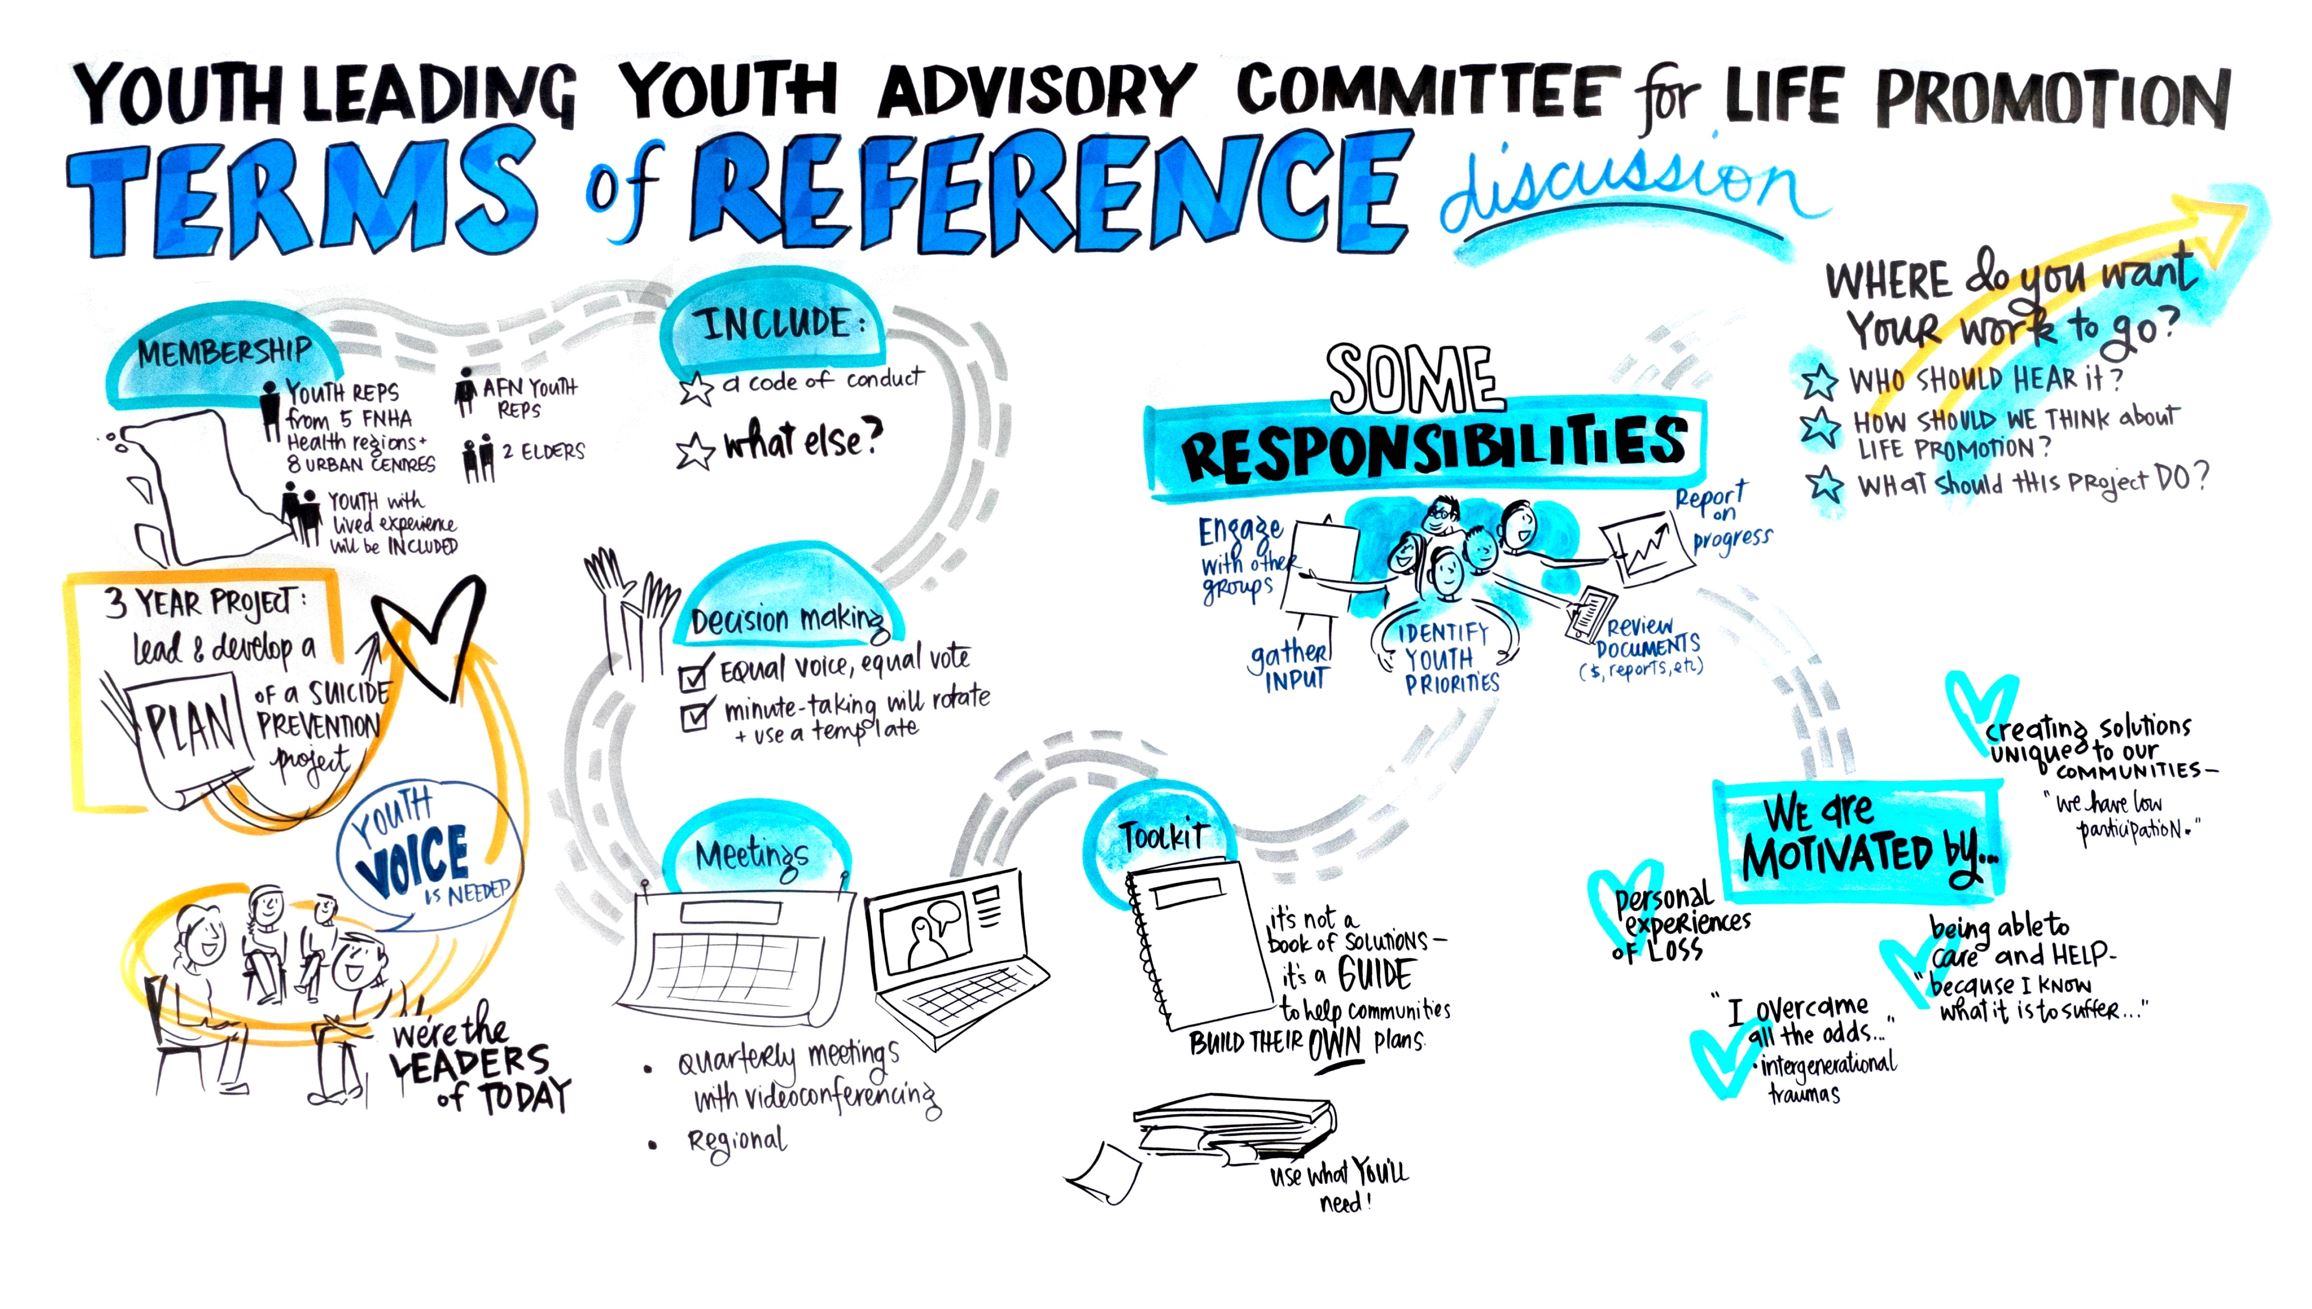 YOUTH LEADING YOUTH ADVISORY COMMITTEE for LIFE PROMOTION
TERMS of REFERENCE discussion
MEMBERSHIP
YOUTH REPS
from 5 FNHA
Health regions +
8 URBAN CENTRES
AFN YOUTH
REPS
2 ELDERS
YOUTH with
lived experience
will be INCLUDED
3 YEAR PROJECT:
lead & develop a
PLAN
OF A SUICIDE
PREVENTION
project
YOUTH
VOICE
IS NEEDED
we're the
LEADERS
of TODAY
INCLUDE:
a code of conduct
what else?
Decision making
EQUAL VOICE, equal vote
minute-taking will rotate
+ use a template
Meetings
• Quarterly meetings
with videoconferencing
• Regional
Toolkit
it's not a
book of SOLUTIONS –
it's a GUIDE
to help communities
BUILD THEIR OWN plans.
use what YOU'LL
need!
SOME
RESPONSIBILITIES
Engage
with other
groups
gather
INPUT
IDENTIFY
YOUTH
PRIORITIES
REVIEW
DOCUMENTS
($, reports, etc)
Report
on
progress
WHERE do you want
YOUR work to go?
WHO SHOULD HEAR it?
HOW SHOULD WE THINK about
LIFE PROMOTION?
WHAT should THIS PROJECT DO?
WE are
MOTIVATED by...
creating solutions
UNIQUE to our
COMMUNITIES –
"we have low
participation."
personal
experiences
of LOSS
being able to
care and HELP –
"because I KNOW
what it is to suffer..."
"I overcame
all the odds..."
• intergenerational
traumas